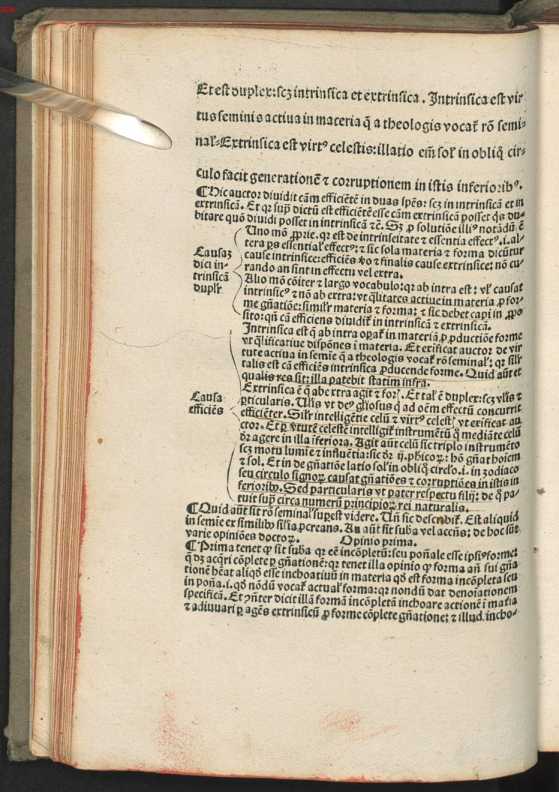 Et est duplex:scȝ intrinsica et extrinsica. Intrinsica est vir
tus seminis actiua in materia q̄ a theologis vocat̄ rō semi-
nal'. Extrinsica est virt⁹ celestis:illatio em̄ sol' in obliq̄ cir-
culo facit generationē ⁊ corruptionem in istis inferiorib⁹.
¶ Hic auctor diuidit cām efficiētē in duas spēs: scȝ in intrinsicā et in
extrinsicā. Et qꝛ sup̄ dictū est efficiētē esse cām extrinsicā posset q̄s du-
bitare quō diuidi posset in intrinsicā ⁊c̄. Sȝ ꝓ solutiōe illi⁹ notādū ē
Causaȝ
dici in-
trinsicā
duplr̄
Uno mō ꝓprie.qꝛ est de intrinseitate ⁊ essentia effect⁹.i.al-
tera ꝑs essential' effect⁹: ⁊ sic sola materia ⁊ forma dicūtur
cause intrinsice:efficiēs ꝟo ⁊ finalis cause extrinsice: nō cu-
rando an sint in effectu vel extra.
Alio mō cōiter ⁊ largo vocabulo:qꝛ ab intra est: vl' causat
intrinsic⁹ ⁊ nō ab extra: vt q̄litates actiue in materia ꝓ for-
me gn̄atiōe: simil'r materia ⁊ forma: ⁊ sic debet capi in ꝓpo
sito:qn̄ cā efficiens diuidit̄ in intrinsicā ⁊ extrinsicā.
Causa
efficiēs
Intrinsica est q̄ ab intra opat̄ in materiā ꝑ ꝓductiōe forme
vt q̄lificatiue dispōnes ī materia. Et exificat auctor de vir
tute actiua in semīe q̄ a theologis vocat̄ rō seminal': qꝛ sil'r
talis est cā efficiēs intrinsica ꝓducende forme. Quid aūt et
qualis res sit: illa patebit statim infra.
Extrinsica ē q̄ ab extra agit ⁊ for'. Et tal' ē duplex:scȝ vl'is ⁊
ꝑticularis. Ul'is vt de⁹ gl'iosus q̄ ad oēm effectū concurrit
efficiēter. Sil'r intelligētie celū ⁊ virt⁹ celest', vt exificat au
ctor. Et ꝑ ꝟtutē celestē intelligit̄ instrumētū q̄ mediāte celū
dr̄ agere in illa īferiora. Agit aūt celū sic triplo instrumēto
scȝ motu lumīe ⁊ influētia:sic dr̄ ij.phicoꝝ: hō gn̄at hoīem
⁊ sol. Et in de gn̄atiōe latio sol'in obliq̄ circlo.i. in zodiaco
seu circulo signoꝝ causat gn̄atiōes ⁊ corruptiōes in istis in
feriorib⁹. Sed particularis vt pater respectu filij: de q̄ pa-
tuit sup̄ circa numerū principioꝝ rei naturalis.
¶ Quid aūt sit rō seminal' suꝑest videre. Un̄ sic descꝛibit̄. Est aliquid
in semīe ex similib⁹ sil'ia ꝓcreans. An aūt sit suba vel accn̄s: de hoc sūt
varie opiniōes doctoꝝ. Opinio prima.
¶ Prima tenet ꝙ sit suba qꝛ eē incōpletū:seu pōnale esse ipsi⁹forme:
q̄ dȝ acq̄ri cōplete ꝑ gn̄ationē:qꝛ tenet illa opinio ꝙ forma an̄ sui gn̄a
tionē hēat aliqd̄ esse inchoatiuū in materia qd̄ est forma incōpleta seu
in pōna.i.qd̄ nōdū vocat̄ actual'forma:qꝛ nondū dat denoīationem
specificā. Et ꝯn̄ter dicit illā formā incōpletā inchoare actionē ī māia
⁊ adiuuari ꝑ agēs extrinsicū ꝓ forme cōplete gn̄atione: ⁊ illud incho-